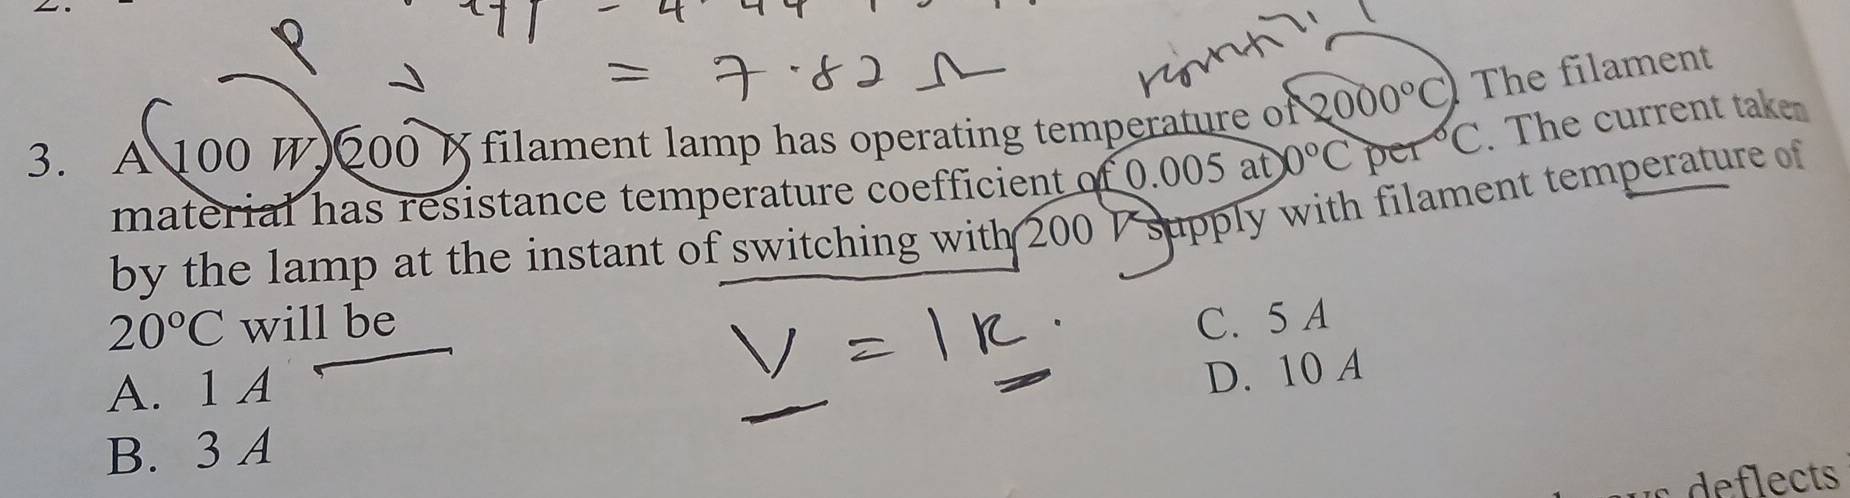 = 7.82 Ω
P
V
3. A 100 W, 200 V filament lamp has operating temperature of 2000°C. The filament
material has resistance temperature coefficient of 0.005 at 0°C per °C. The current taken
by the lamp at the instant of switching with 200 V supply with filament temperature of
20°C will be
V = IR.
A. 1 A
B. 3 A
C. 5 A
D. 10 A
deflects